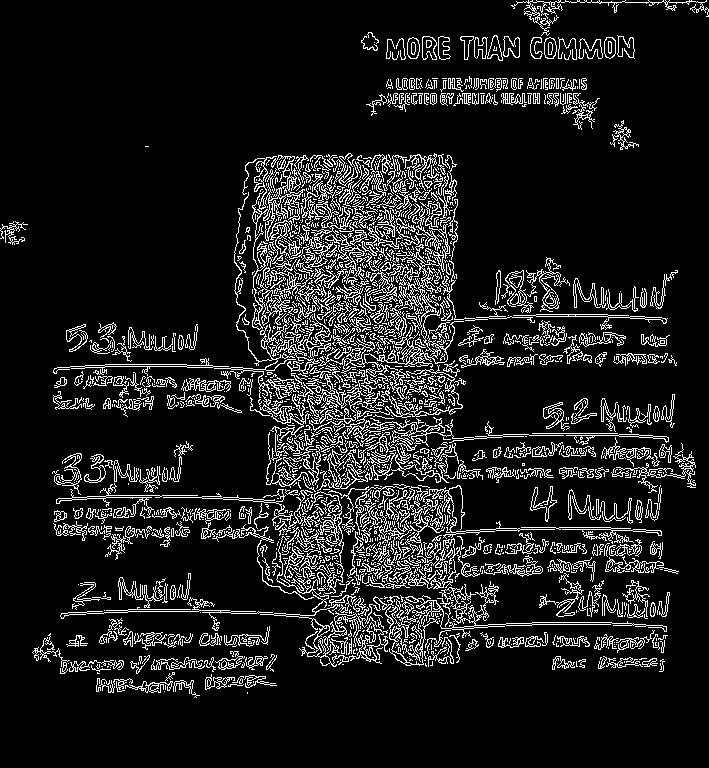 * MORE THAN COMMON
A LOOK AT THE NUMBER OF AMERICANS
AFFECTED BY MENTAL HEALTH ISSUES
18.8 MILLION
# OF AMERICAN ADULTS WHO
SUFFER FROM SOME FORM OF DEPRESSION
5.3 MILLION
# OF AMERICAN ADULTS AFFECTED BY
SOCIAL ANXIETY DISORDER
5.2 MILLION
# OF AMERICAN ADULTS AFFECTED BY
POST TRAUMATIC STRESS DISORDER
3.3 MILLION
# OF AMERICAN ADULTS AFFECTED BY
OBSESSIVE-COMPULSIVE DISORDER
4 MILLION
# OF AMERICAN ADULTS AFFECTED BY
GENERALIZED ANXIETY DISORDER
2 MILLION
# OF AMERICAN CHILDREN
DIAGNOSED W/ ATTENTION DEFICIT/
HYPER ACTIVITY DISORDER
2.4 MILLION
# OF AMERICAN ADULTS AFFECTED BY
PANIC DISORDERS